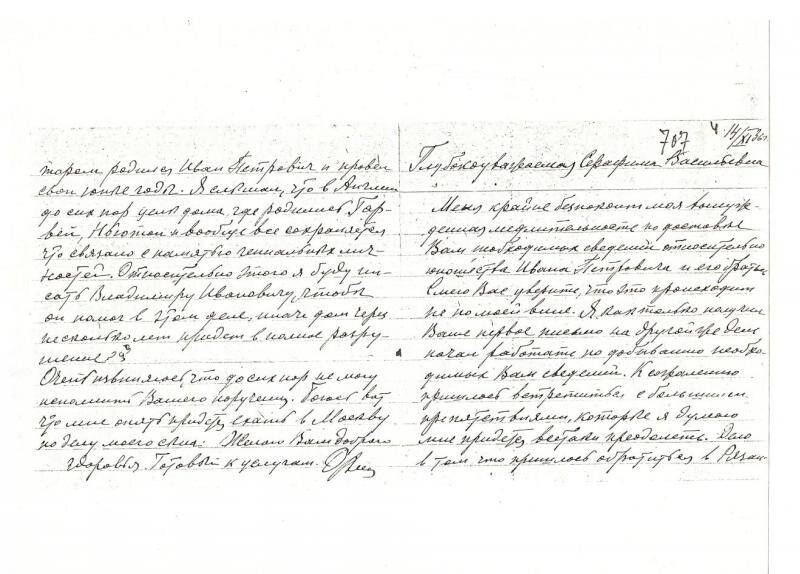 707 4. 14/XI 36 г.
Глубокоуважаемая Серафима Васильевна
Меня крайне безпокоит моя вынуж-
денная медлительность по доставке
Вам необходимых сведений относительно
юношества Ивана Петровича и его братьев
Смею Вас уверить, что это происходит
не по моей вине. Я как только получил
Ваше первое письмо на другой же день
начал работать по добыванию необхо-
димых Вам сведений. К сожалению
пришлось встретиться с большими
препятствиями, которые я думаю
мне придется всетаки преодолеть. Дело
в том, что пришлось обратиться в Рязан-
тором родился Иван Петрович и провел
свои юные годы. Я слышал, что в Англии
до сих пор целы дома, где родились Гар-
вей, Ньютон и вообще все сохраняется
что связано с памятью гениальных лич-
ностей. Относительно этого я буду пи-
сать Владимиру Ивановичу, чтобы
он помог в этом деле, иначе дом через
несколько лет придет в полное разру-
шение.
Очень извиняюсь, что до сих пор не могу
исполнить Вашего поручения. Боюсь вот
что мне опять придется ехать в Москву
по делу моего сына. Желаю Вам доброго
здоровья. Готовый к услугам.